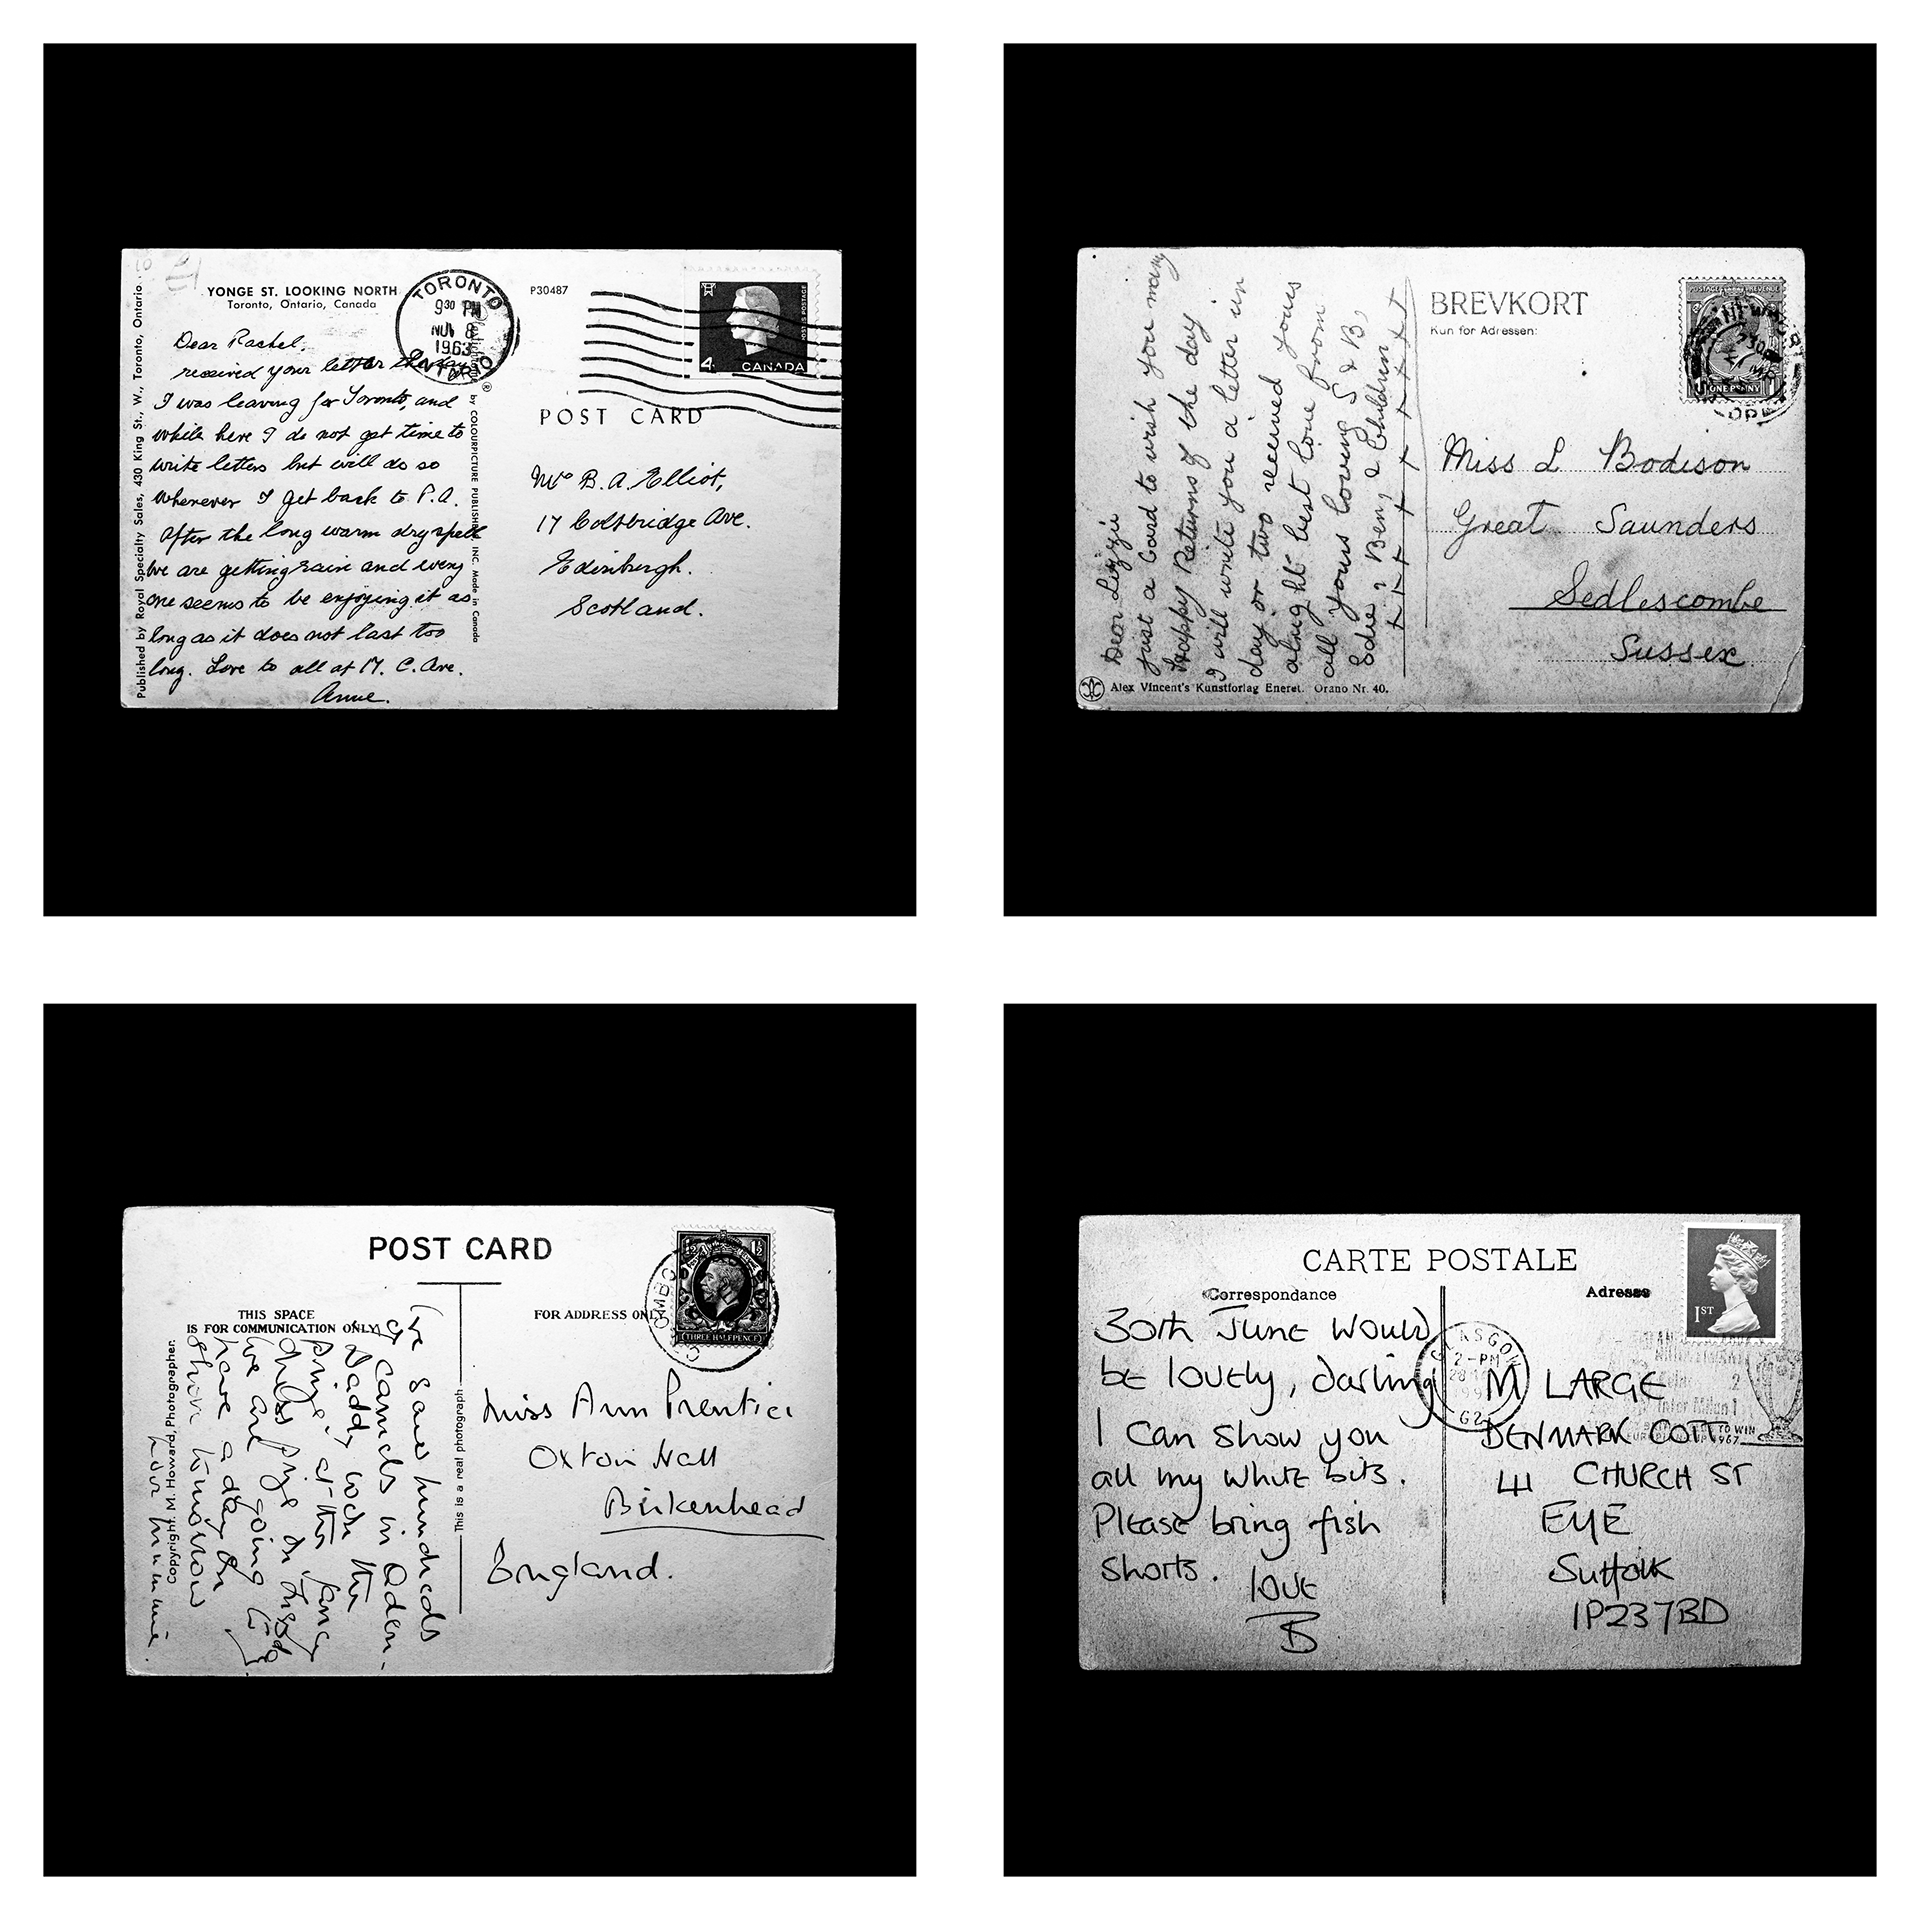 YONGE ST. LOOKING NORTH
Toronto, Ontario, Canada
P30487
TORONTO
9 30 PM
NOV 8
1963
ONTARIO
4
CANADA
POSTES POSTAGE
Published by Royal Specialty Sales, 430 King St., W., Toronto, Ontario.
Dear Rachel,
received your letter the day
I was leaving for Toronto, and
while here I do not get time to
write letters but will do so
whenever I get back to P.A.
After the long warm dry spell
we are getting rain and every
one seems to be enjoying it as
long as it does not last too
long. Love to all at 17. C. Ave.
Anne.
by COLOURPICTURE PUBLISHERS INC. Made in Canada
POST CARD
B.A. Elliot,
17 Coltbridge Ave.
Edinburgh.
Scotland.
BREVKORT
Kun for Adressen:
POSTAGE REVENUE
ONE PENNY
Dear Lizzie
Just a Card to wish you many
Happy Returns of the day
I will write you a letter in
day or two received yours
alright best love from
all yours loving S & B,
Edie & Ben, & Children
+ + + + + + + + + +
Miss L Bodison
Great Saunders
Sedlescombe
Sussex
Alex Vincent's Kunstforlag Eneret. Orano Nr. 40.
POST CARD
THIS SPACE
IS FOR COMMUNICATION ONLY
FOR ADDRESS ONLY
1½
THREE HALFPENCE
I've saw hundreds
of Camels in Aden.
Daddy took the
prize at the fancy
dress
we are going to
have a day on
shore tomorrow
Love
Copyright. M. Howard, Photographer.
This is a real photograph
Miss Ann Prentice
Oxton Hall
Birkenhead
England.
CARTE POSTALE
Correspondance
Adresse
1ST
GLASGOW
2-PM
G2
30th June would
be lovely, darling
I can show you
all my white bits.
Please bring fish
shorts.
love
B
M LARGE
DENMARK COTT
41 CHURCH ST
EYE
Suffolk
IP237BD
2
Inter Milan 1
TO WIN
EUROPEAN CUP 1967